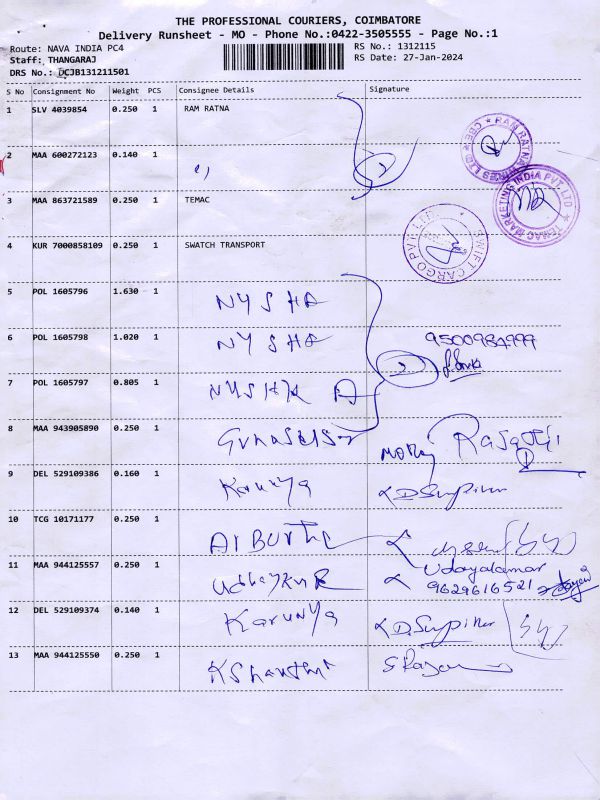 THE PROFESSIONAL COURIERS, COIMBATORE
Delivery Runsheet - MO - Phone No.:0422-3505555 - Page No.:1
Route: NAVA INDIA PC4
RS No.: 1312115
Staff: THANGARAJ
RS Date: 27-Jan-2024
DRS No.: DCJB131211501
S No Consignment No Weight PCS Consignee Details Signature
1 SLV 4039854 0.250 1 RAM RATNA
2 MAA 600272123 0.140 1 "
3 MAA 863721589 0.250 1 TEMAC
4 KUR 7000858109 0.250 1 SWATCH TRANSPORT
5 POL 1605796 1.630 1 NYSHA
6 POL 1605798 1.020 1 NYSHA 9500984999
7 POL 1605797 0.805 1
8 MAA 943905890 0.250 1
9 DEL 529109386 0.160 1 Karunya
10 TCG 10171177 0.250 1
11 MAA 944125557 0.250 1 Udhaykur Udayakumar
9629616521
12 DEL 529109374 0.140 1 Karunya
13 MAA 944125550 0.250 1 KShanthi